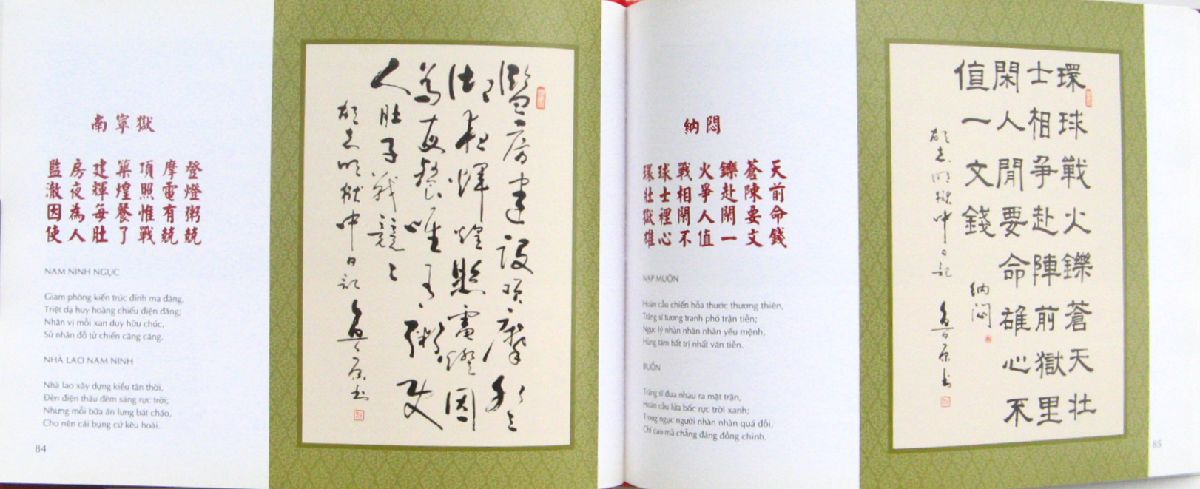 南寧獄
監房建築頂摩登
澈夜輝煌照電燈
因為每餐惟有粥
使人肚子戰兢兢
NAM NINH NGỤC
Giam phòng kiến trúc đính ma đăng,
Triệt dạ huy hoàng chiếu điện đăng;
Nhân vị mỗi xan duy hữu chúc,
Sử nhân đỗ tử chiến căng căng.
NHÀ LAO NAM NINH
Nhà lao xây dựng kiểu tân thời,
Đèn điện thâu đêm sáng rực trời;
Nhưng mỗi bữa ăn lưng bát cháo,
Cho nên cái bụng cứ kêu hoài.
84
監房建設頂摩登
御夜煇煌照電燈因
為每餐唯有粥使
人肚子戰兢兢
胡志明獄中日記
納悶
環球戰火鑠蒼天
壯士相爭赴陳前
獄裡閒人閒要命
雄心不值一文錢
NẠP MUỘN
Hoàn cầu chiến hỏa thước thương thiên,
Tráng sĩ tương tranh phó trận tiền;
Ngục lý nhàn nhân nhàn yếu mệnh,
Hùng tâm bất trị nhất văn tiền.
BUỒN
Tráng sĩ đua nhau ra mặt trận,
Hoàn cầu lửa bốc rực trời xanh;
Trong ngục người nhàn nhàn quá đỗi,
Chí cao mà chẳng đáng đồng chinh.
環球戰火鑠蒼天壯
士相爭赴陣前獄里
閑人閒要命雄心不
值一文錢
胡志明獄中日記
納悶
85